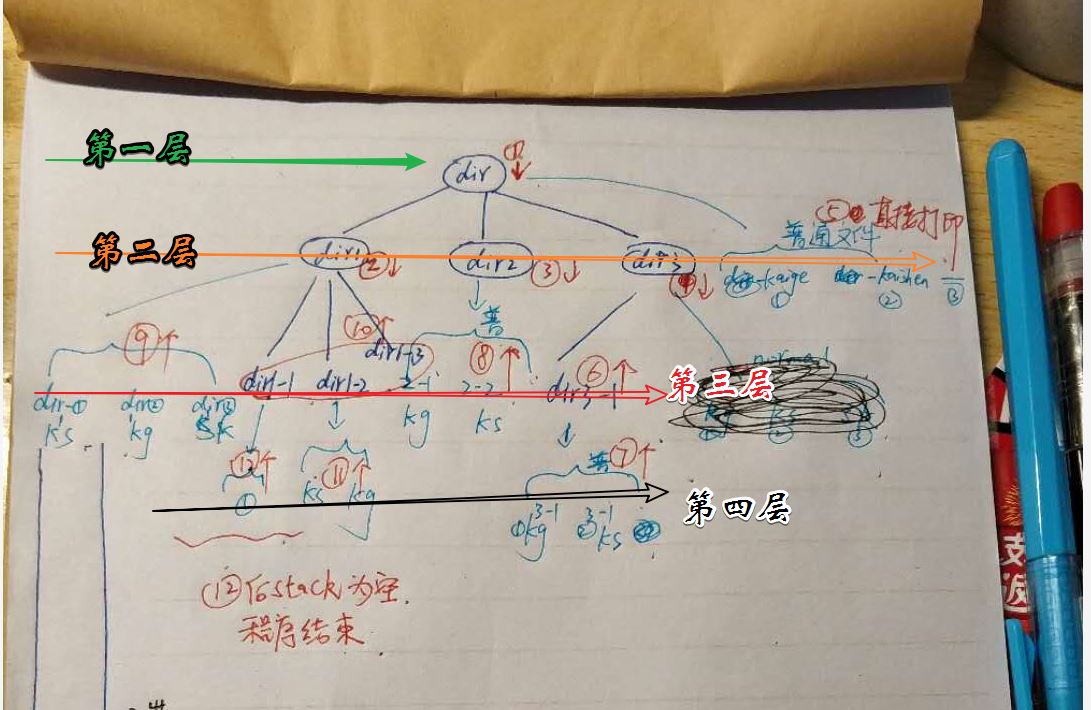 第一层
dir ①↓
⑤ 直接打印
第二层
dir1 ②↓
dir2 ③↓
dir3 ④↓
普通文件
-kaige
①
-kaishen
②
③
⑨↑
⑩↑
普
⑧↑
⑥↑
dir1-1
dir1-2
dir1-3
2-1
2-2
dir3-1
第三层
dir-①
dir②
dir③
ks
kg
sk
kg
ks
⑫↑
①
⑪↑
ks
kg
普 ⑦↑
第四层
①kg 3-1
②ks 3-1
⑫后stack为空.
程序结束
支
返